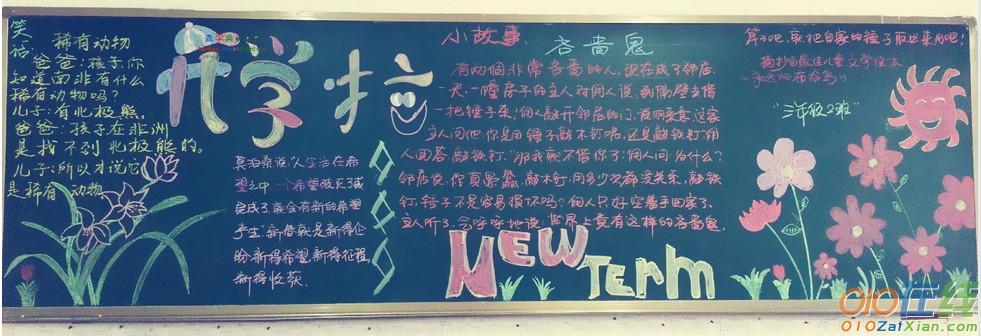 笑话:稀有动物
爸爸:孩子,你
知道面非有什么
稀有动物吗?
儿子:有北极熊。
爸爸:孩子在非洲
是找不到北极熊的。
儿子:所以才说它
是稀有动物
开学啦
莫泊桑说"人生活在希
望之中一个希望破灭了或
完成了就会有新的希望
产生,新春就是新得企
盼新得希望新得征程,
新得收获.
小故事
吝啬鬼
有两個非常吝啬的人,
一天,一幢房子的主人对佣人说,到隔壁去借
一把锤子来,佣人敲开邻居的门,
主人问他,你是用锤子敲木钉呢,还是敲铁钉,佣
人回答,敲铁钉,"那我就不借你了,佣人问:为什么?
邻居说,你真愚蠢,敲木钉,用多少次都没关系,敲铁
钉,锤子不是容易损坏吗?佣人只好空着手回家了,
主人听了,气呼呼地说,世界上竟有这样的吝啬鬼,
算了吧,就把自家的锤子取出来用吧!
"三年级2班"
NEW
TERM
010在线
010ZaiXian.com